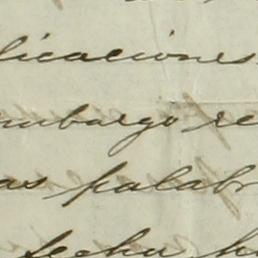 licaciones
mbargo re
as palabr
fecha h